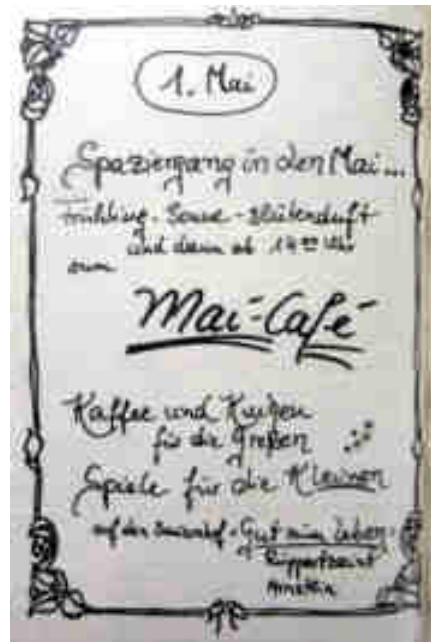 1. Mai
Spaziergang in den Mai...
Frühling - Sonne - Blütenduft
und dann ab 14 00 Uhr
zum
Mai-Café
Kaffee und Kuchen
für die Großen
Spiele für die Kleinen
auf dem - Gut zum Leben -